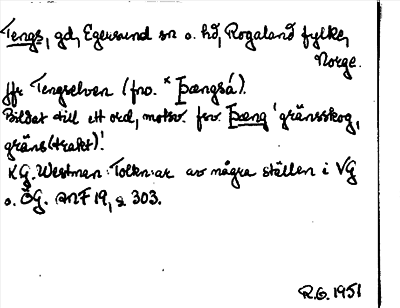 Tengs, gd, Egersund sn o. hd, Rogaland fylke,
Norge.
Jfr Tengselven (fno. *Þængsá).
Bildat till ett ord, motsv. fsv. Þæng 'gränsskog,
gräns(trakt)'.
KG. Westman: Tolkn:ar av några ställen i VG
o. ÖG. ANF 19, s 303.
R.G. 1951